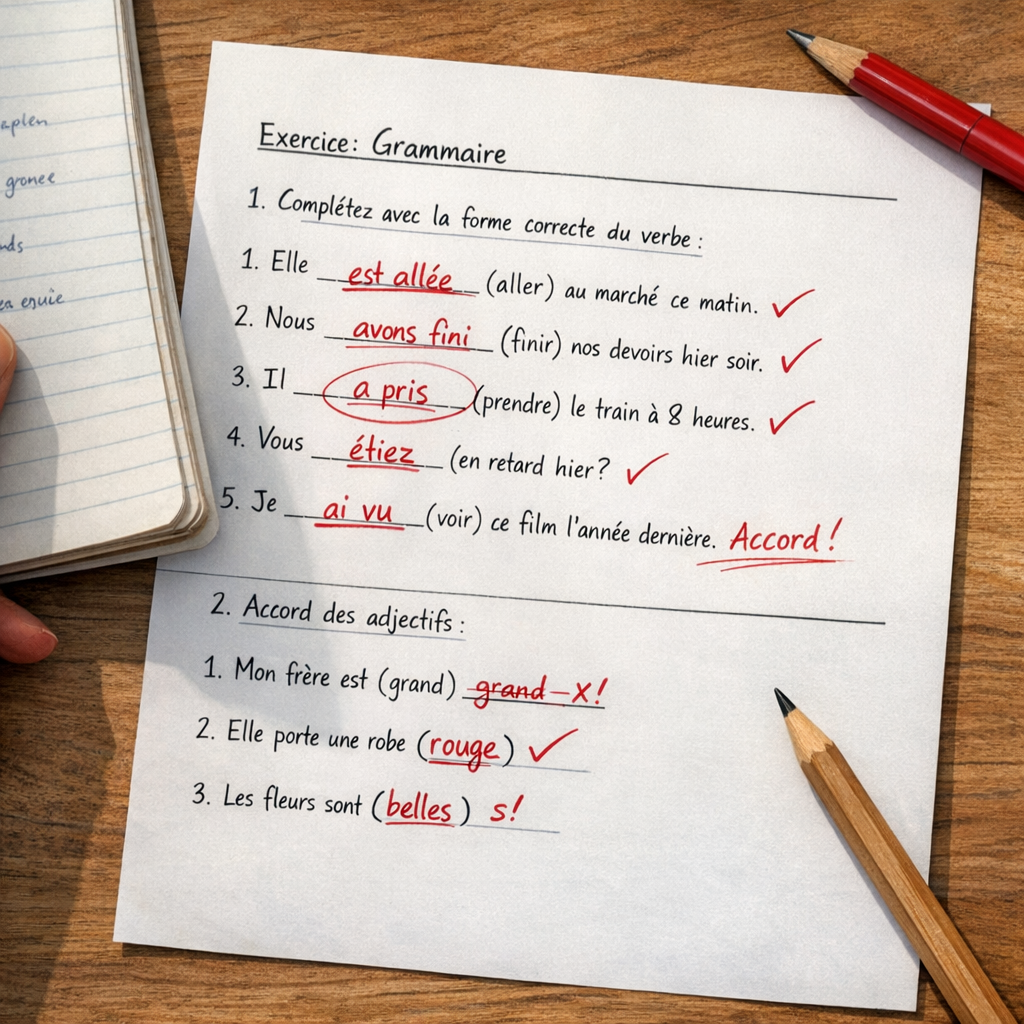 Exercice: Grammaire
1. Complétez avec la forme correcte du verbe :
1. Elle est allée (aller) au marché ce matin. ✓
2. Nous avons fini (finir) nos devoirs hier soir. ✓
3. Il a pris (prendre) le train à 8 heures. ✓
4. Vous étiez (en retard hier? ✓
5. Je ai vu (voir) ce film l'année dernière. Accord!
2. Accord des adjectifs :
1. Mon frère est (grand) grand – x!
2. Elle porte une robe (rouge) ✓
3. Les fleurs sont (belles) s!